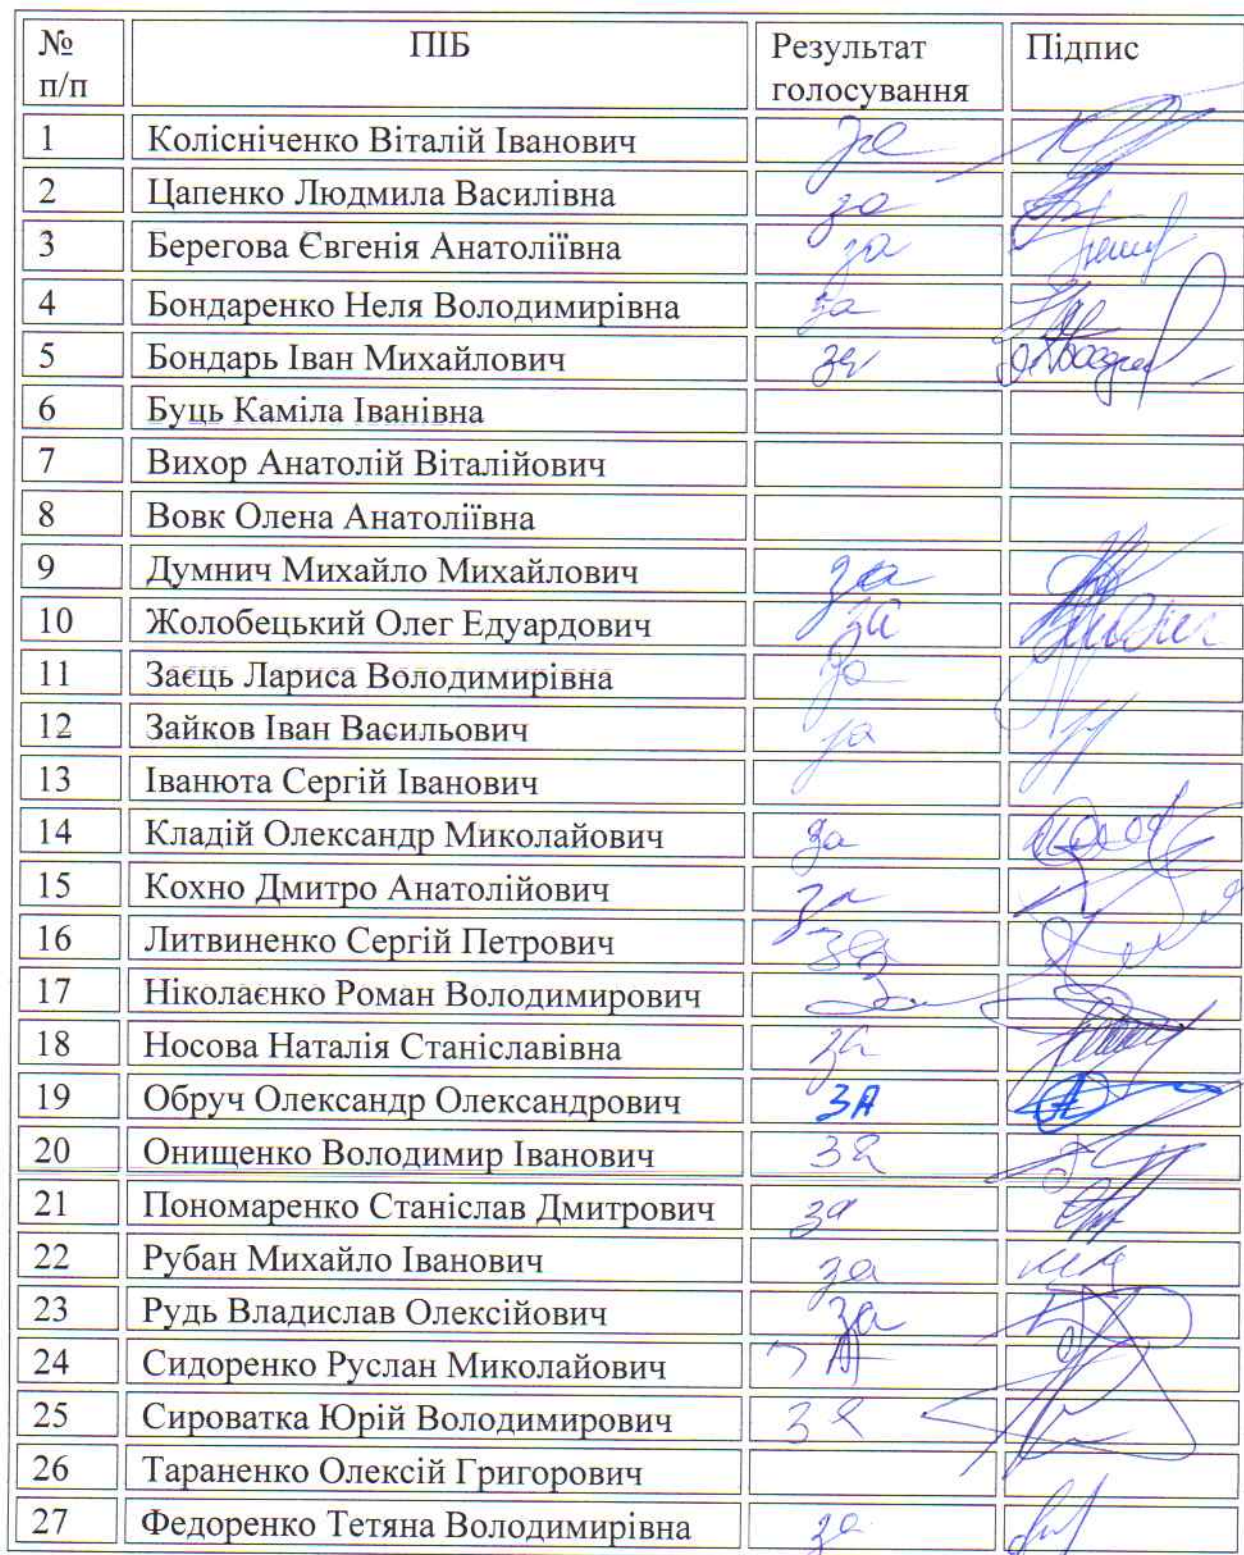 № п/п ПІБ Результат голосування Підпис
1 Колісніченко Віталій Іванович за
2 Цапенко Людмила Василівна за
3 Берегова Євгенія Анатоліївна за
4 Бондаренко Неля Володимирівна за
5 Бондарь Іван Михайлович за
6 Буць Каміла Іванівна
7 Вихор Анатолій Віталійович
8 Вовк Олена Анатоліївна
9 Думнич Михайло Михайлович за
10 Жолобецький Олег Едуардович за
11 Заєць Лариса Володимирівна за
12 Зайков Іван Васильович за
13 Іванюта Сергій Іванович
14 Кладій Олександр Миколайович за
15 Кохно Дмитро Анатолійович за
16 Литвиненко Сергій Петрович за
17 Ніколаєнко Роман Володимирович
18 Носова Наталія Станіславівна за
19 Обруч Олександр Олександрович ЗА
20 Онищенко Володимир Іванович за
21 Пономаренко Станіслав Дмитрович за
22 Рубан Михайло Іванович за
23 Рудь Владислав Олексійович за
24 Сидоренко Руслан Миколайович
25 Сироватка Юрій Володимирович за
26 Тараненко Олексій Григорович
27 Федоренко Тетяна Володимирівна за